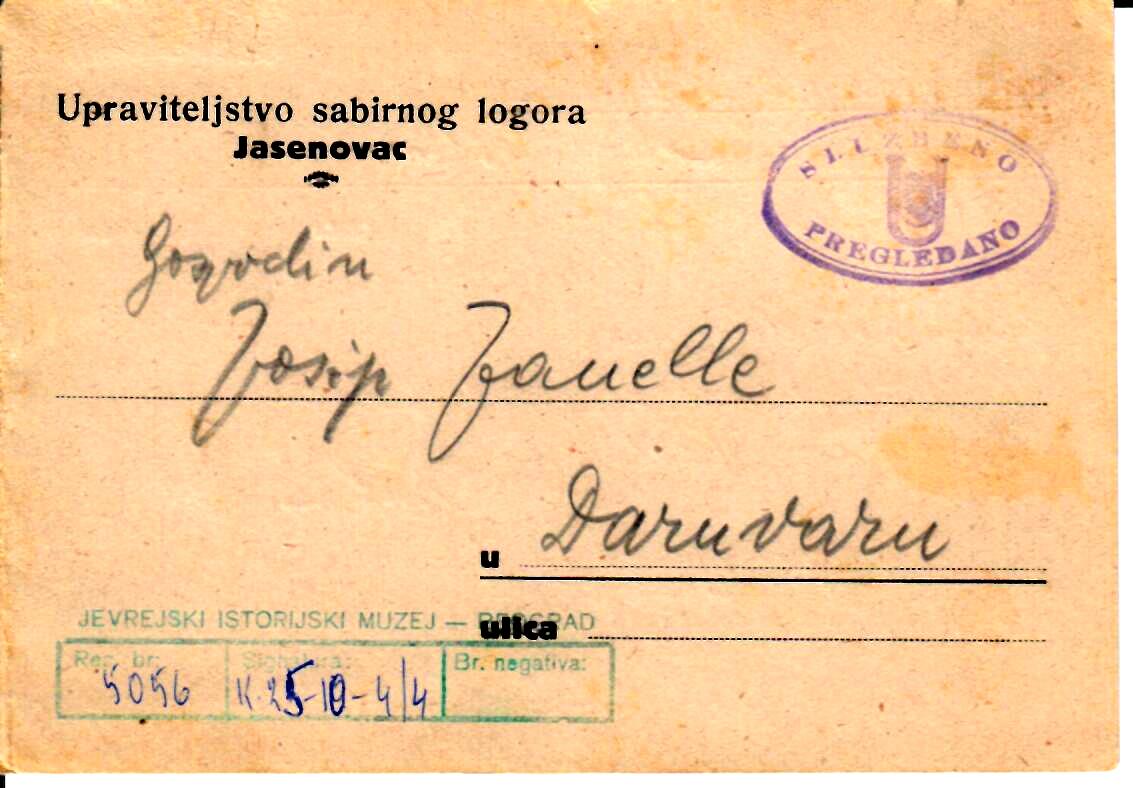 Upraviteljstvo sabirnog logora
Jasenovac
SLUŽBENO
U
PREGLEDANO
Gospodin
Josip Zanelle
u Daruvaru
JEVREJSKI ISTORIJSKI MUZEJ — BEOGRAD
ulica
Reg. br: Signatura: Br. negativa:
5056 K.25-10-4/4